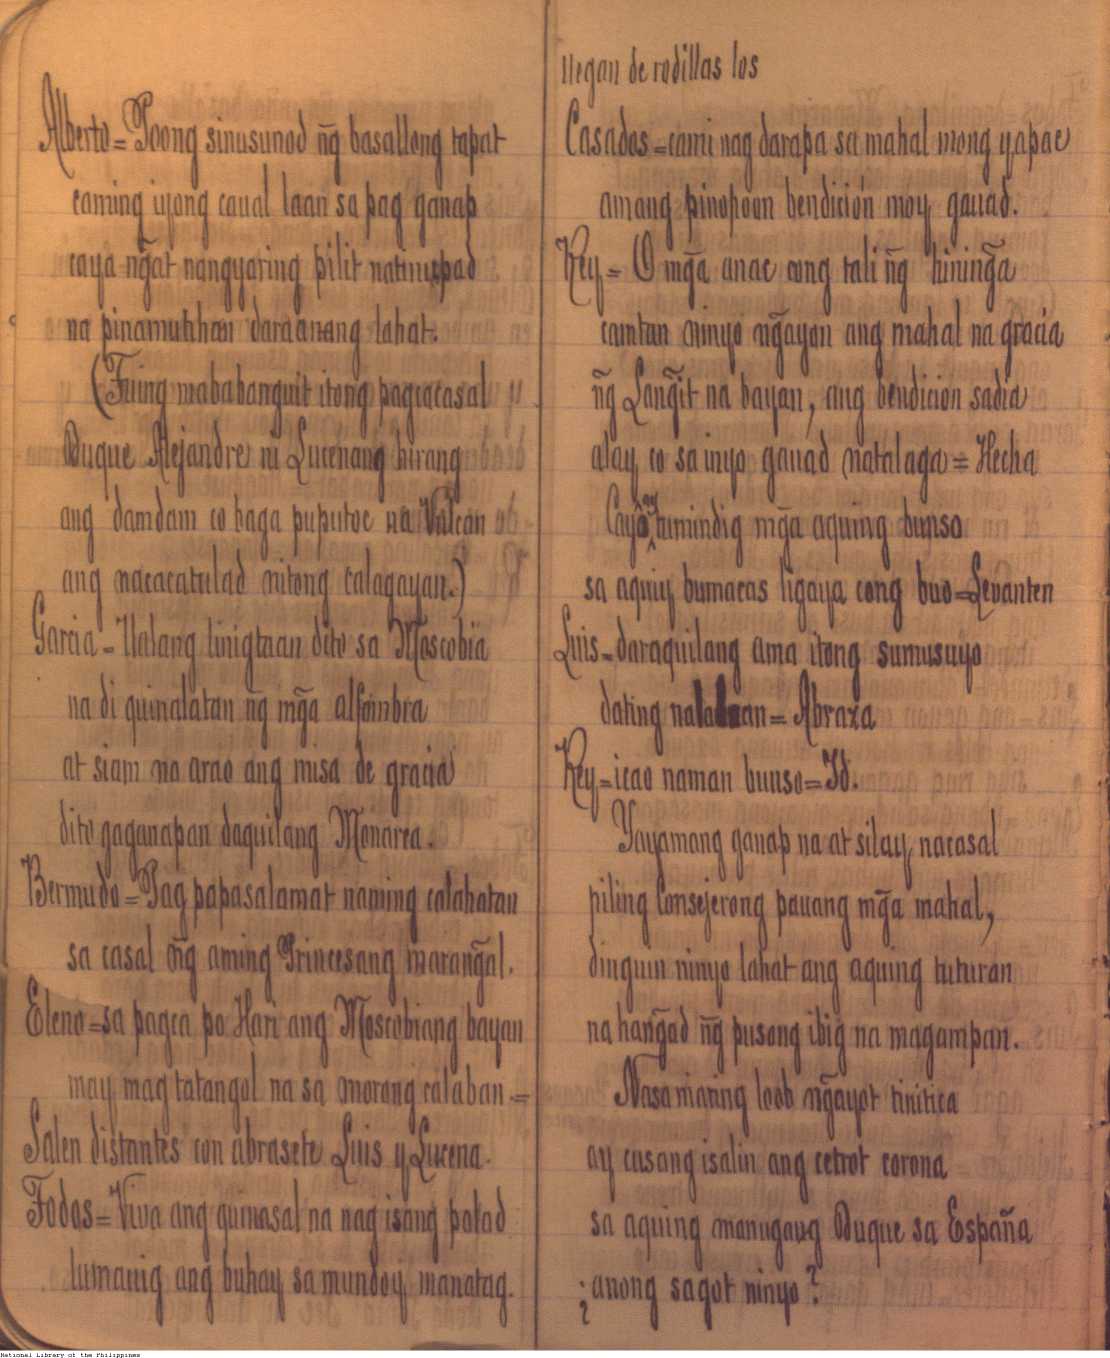 Alberto = Poong sinusunod ñg basallong tapat
caming iyong caual laan sa pag ganap
caya ñgat nangyaring pilit natimtpad
na pinamutihan daraanang lahat.
(Fuing mababanguit itong pagcacasal
Duque Alejandre ni Lucenang hirang
ang damdam co baga puputoc na Vulcan
ang nacacatulad nitong calagayan.)
Garcia = Ualang linigtaan dito sa Moscobia
na di quinalatan ñg mg̃a alfombra
at siam na arao ang misa de gracia
dito gaganapan daquilang Monarca.
Bermudo = Pag papasalamat naming calahatan
sa casal ñg aming Princesang marang̃al.
Eleno = sa pagca po Hari ang Moscobiang bayan
may mag tatangol na sa morong calaban =
Salen distantes con abrasete Luis y Lucena.
Todos = Viva ang quinasal na nag isang palad
lumauig ang buhay sa mundoy manatag.
llegan de rodillas los
Casados = cami nag darapa sa mahal mong yapac
amang pinopoon bendición moy gauad.
Rey = O mg̃a anac cong tali ñg hining̃a
camtan ninyo ng̃ayon ang mahal na gracia
ñg Lang̃it na bayan, ang bendicion sadia
alay co sa inyo gauad natalaga = Hecha
Cayo ay tumindig mg̃a aquing bunso
sa aquiy bumacas ligaya cong buo = Levanten
Luis = daraquilang ama itong sumusuyo
dating = Abraza
Rey = icao naman bunso = Id.
Yayamang ganap na at silay nacasal
piling Consejerong pauang mg̃a mahal,
dinguin ninyo lahat ang aquing tuturan
na hang̃ad ñg pusong ibig na magampan.
Nasa niaring loob ng̃ayot tinitica
ay cusang isalin ang cetrot corona
sa aquing manugang Duque sa España
¿anong sagot ninyo?
National Library of the Philippines